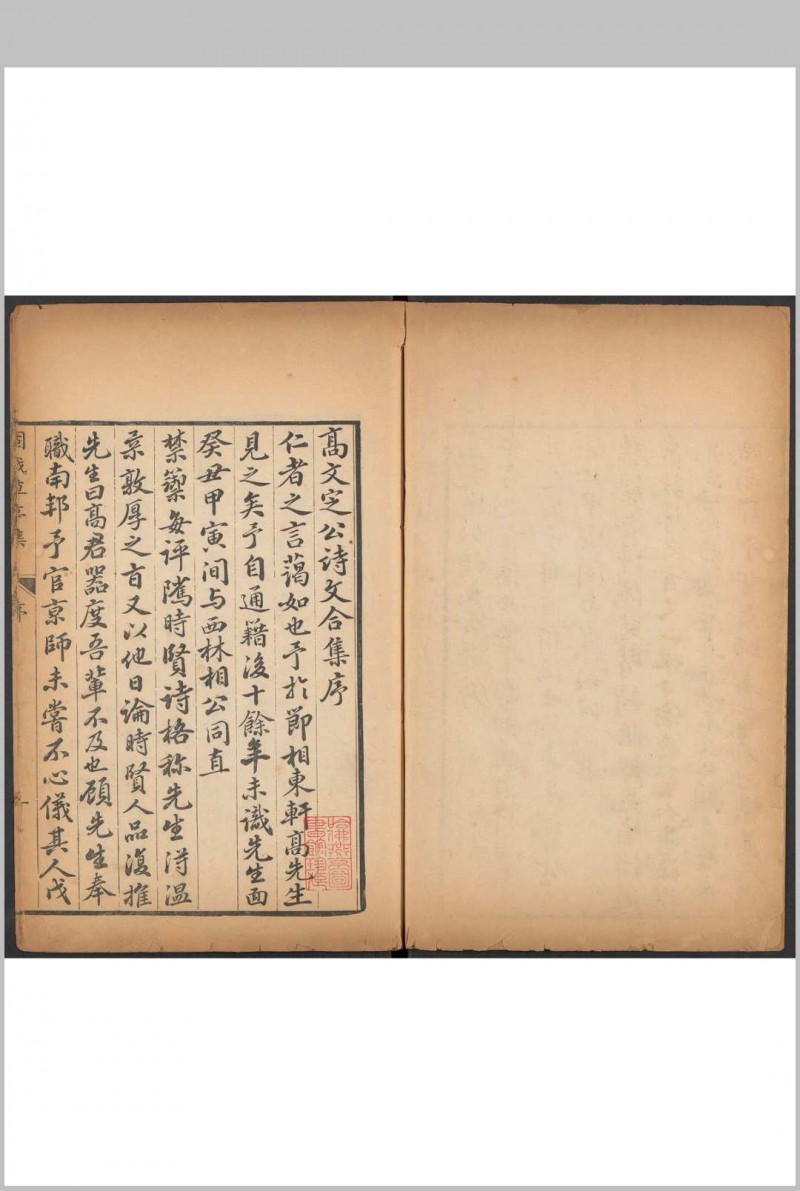 高文定公詩文合集序
仁者之言藹如也予於節相東軒高先生
見之矣予自通籍後十餘年未識先生面
癸丑甲寅间与西林相公同直
禁籞每評隲時賢诗格称先生淂温
柔敦厚之旨又以他日論時賢人品復推
先生曰高君器度吾輩不及也顾先生奉
職南邦予官京師未嘗不心儀其人戊
固哉草亭集
序